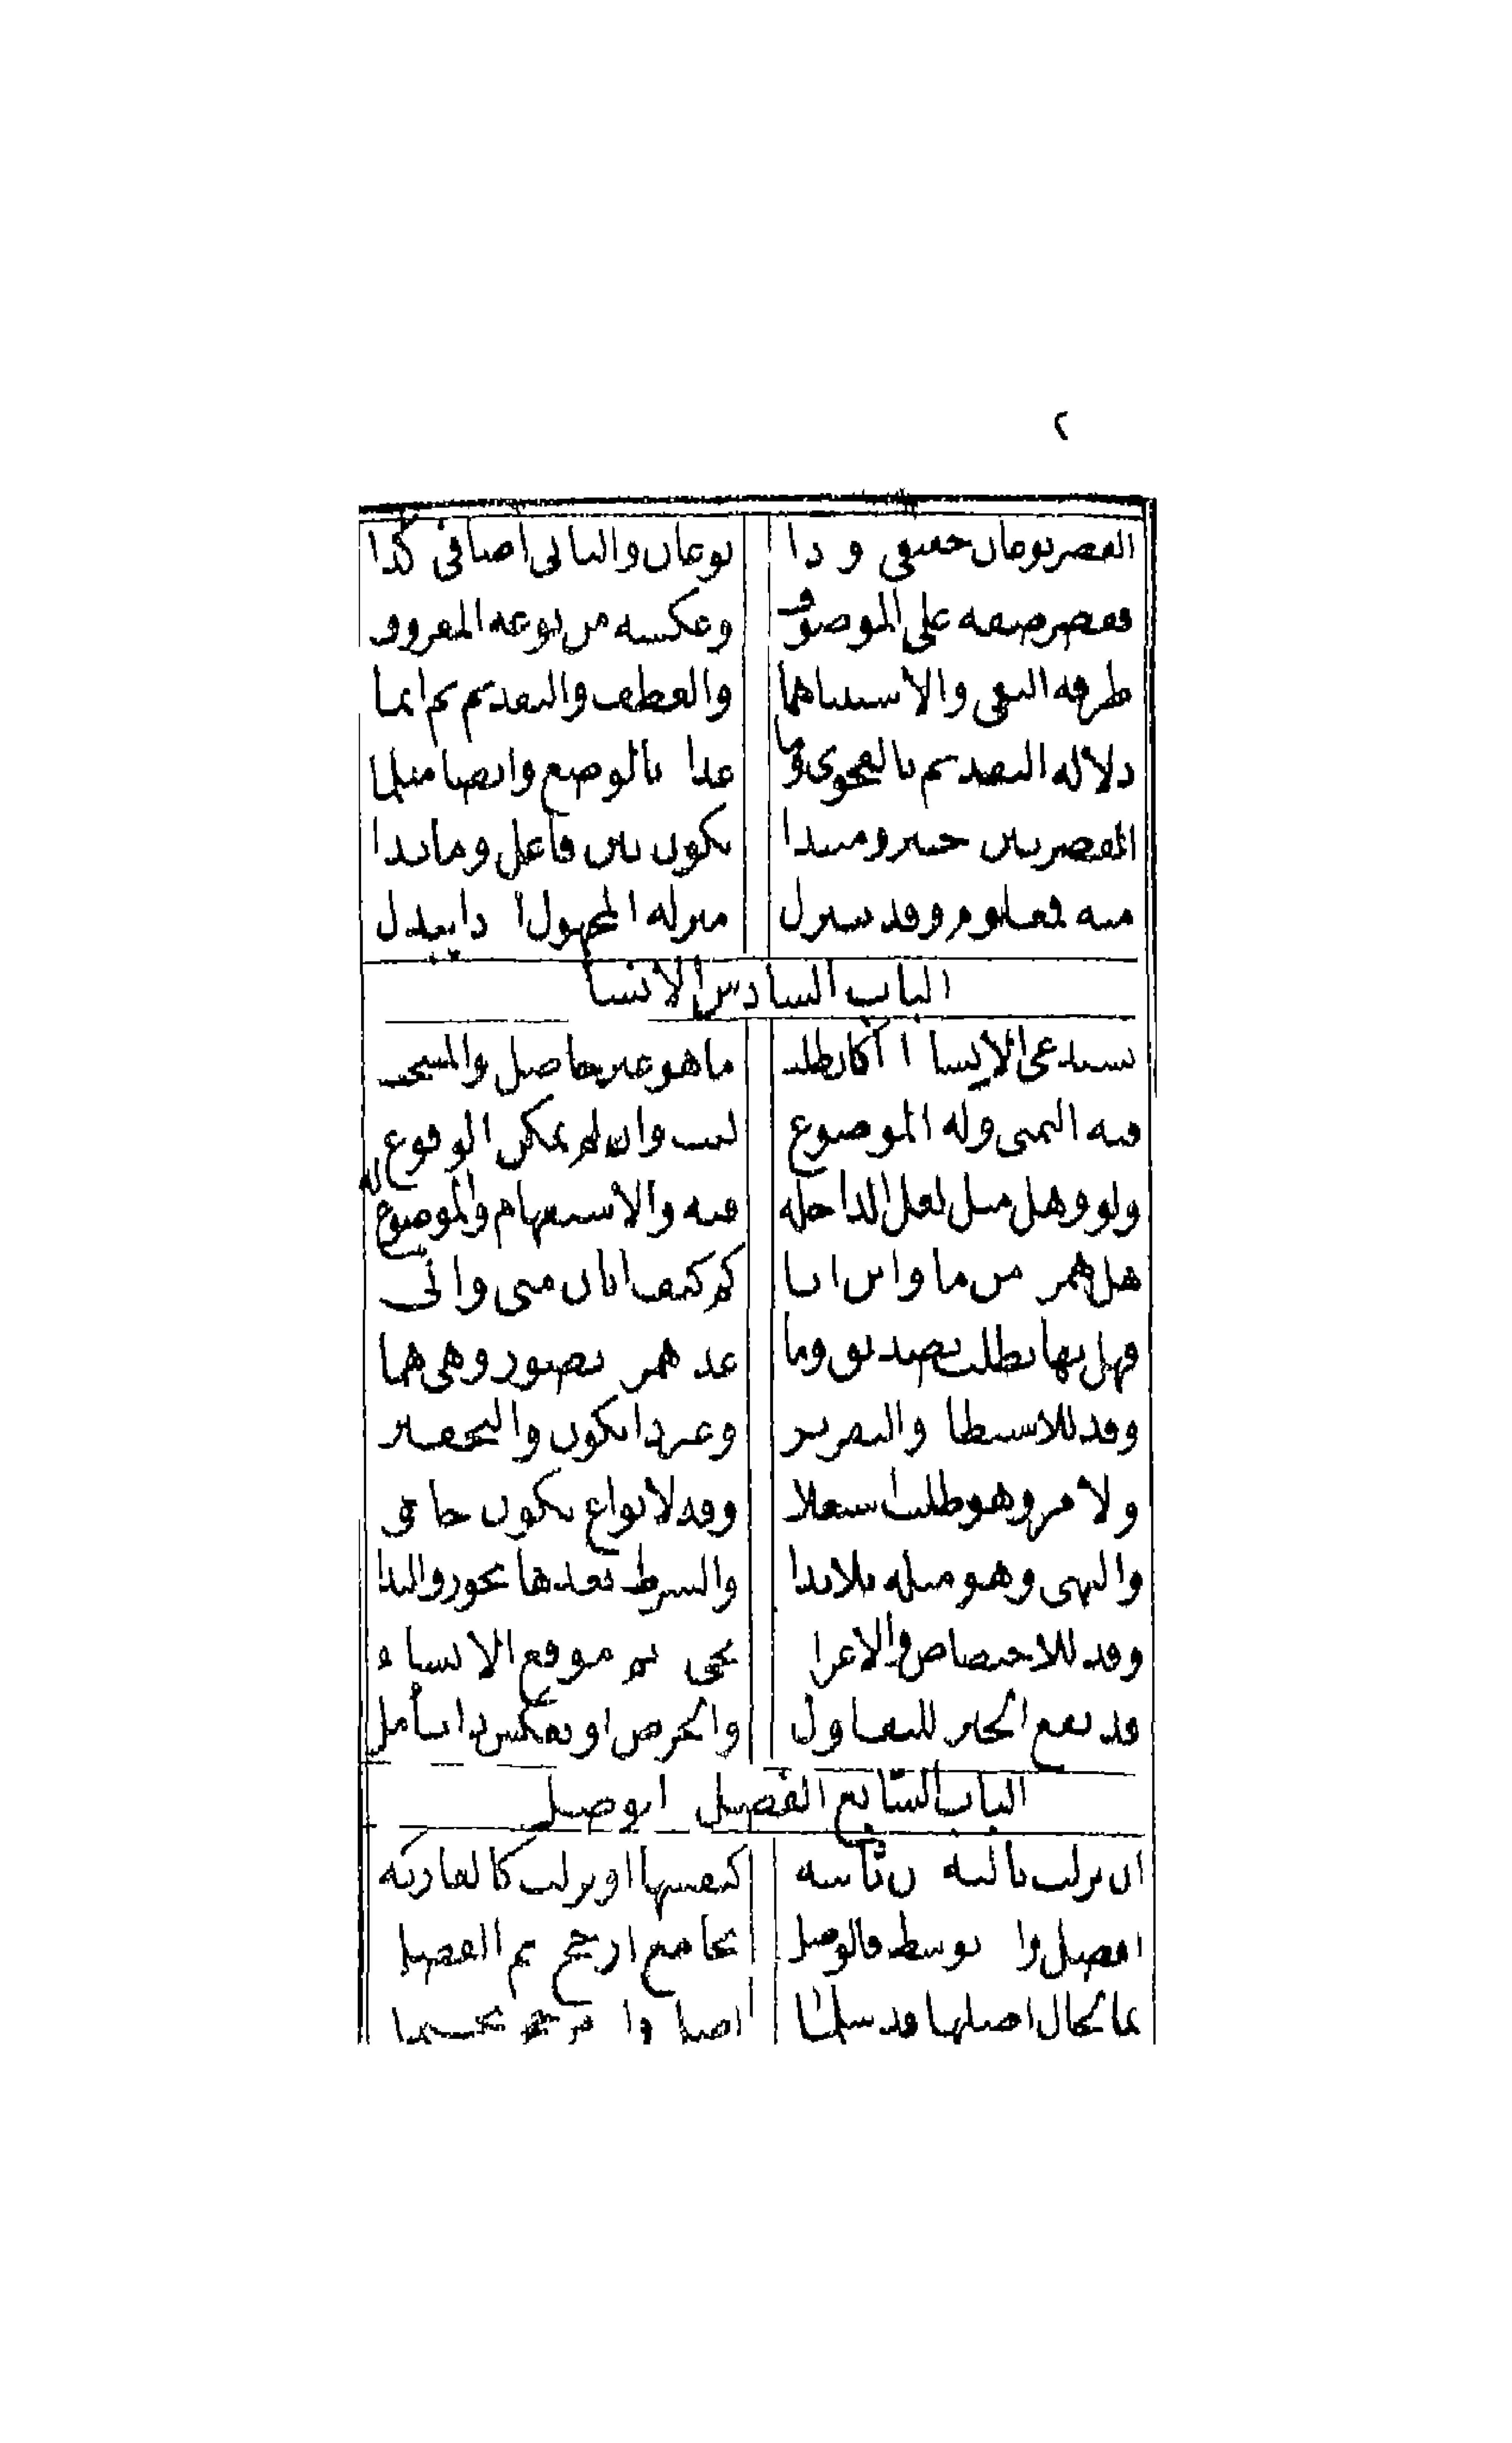 ٢
القصر نوعان حقيقي وذا نوعان والثاني اضافي كذا
فقصر صفة على الموصوف وعكسه من نوعه المعروف
طرقه النفي والاستثنا هما والعطف والتقديم ثم انما
دلالة التقديم بالفحوى وما عدا بالوضع وايضا مثلما
القصر بين خبر ومبتدا يكون بين فاعل وما بدا
منه فمعلوم وقد ينزل منزلة المجهول ا ذا يبدل
الباب السادس الانشا
يستدعي الانشا اذا كان طلب ما هو غير حاصل والمنتخب
فيه التمني وله الموضوع ليت وان لم يمكن الوقوع
ولو وهل مثل لعل الداخله فيه والاستفهام والموضوع له
هل همز من ما واين ايا كم كيف ايان متى وانى
فهل بها يطلب تصديق وما عدا همز تصور وهي هما
وقد للاستبطا والتقرير وغير ذا يكون والتحقير
ولامر وهو طلب استعلا وقد لانواع يكون جاء في
والنهي وهو مثله بلا بدا والشرط بعدها يجوز والندا
وقد للاختصاص والاغرا يجي ثم موقع الانشاء
قد يقع الخبر للتفاول والحرص او بعكس ذا تأمل
الباب السابع الفصل الوصل
ان نزلت تالية من ثانيه كنفسها او نزلت كالعاريه
افصل وا توسط فالوصل بجامع ارجح ثم الفصل